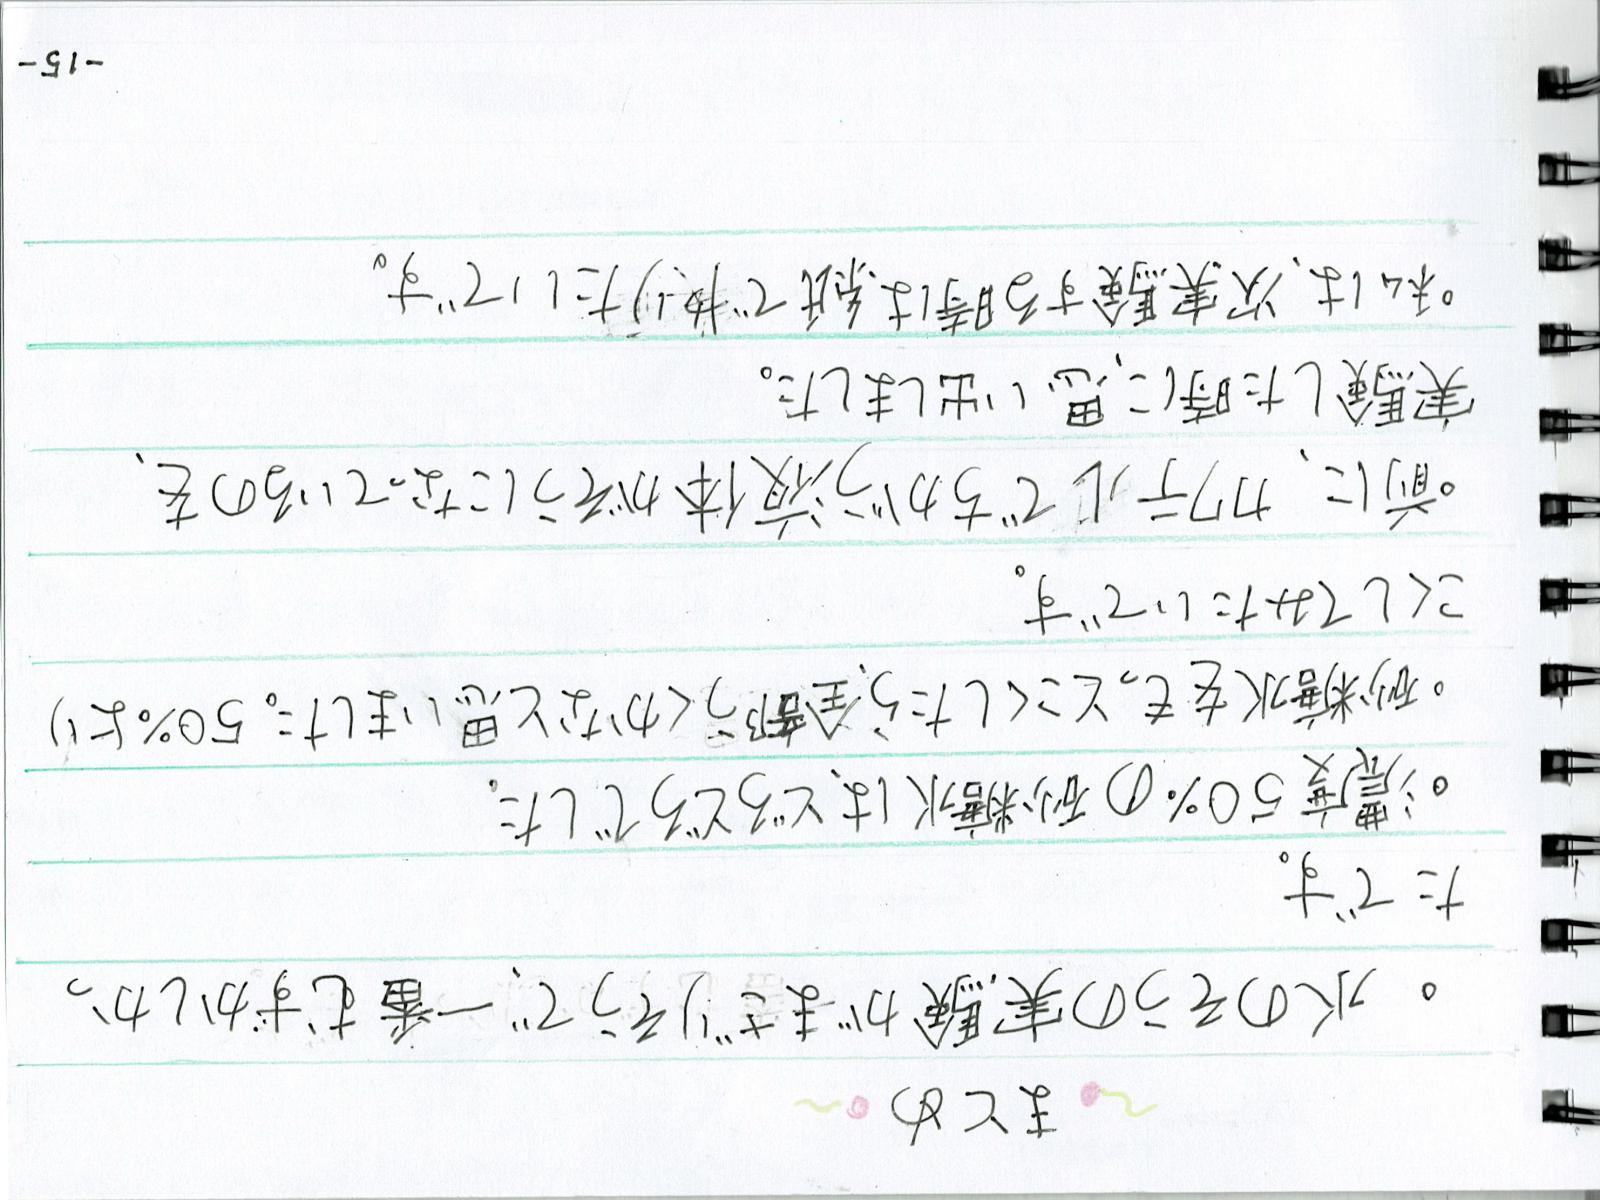 まとめ
・水のそうの実験がまざりそうで、一番むずかしかっ
たです。
・濃度50%の砂糖水は、どろどろでした。
・砂糖水をもっとこくしたら、全部うくかなと思いました。50%より
こくしてみたいです。
・前に、カクテルでちがう液体がそうになっているのを、
実験した時に、思い出しました。
・私は、次実験する時は、紙でやりたいです。
-15-